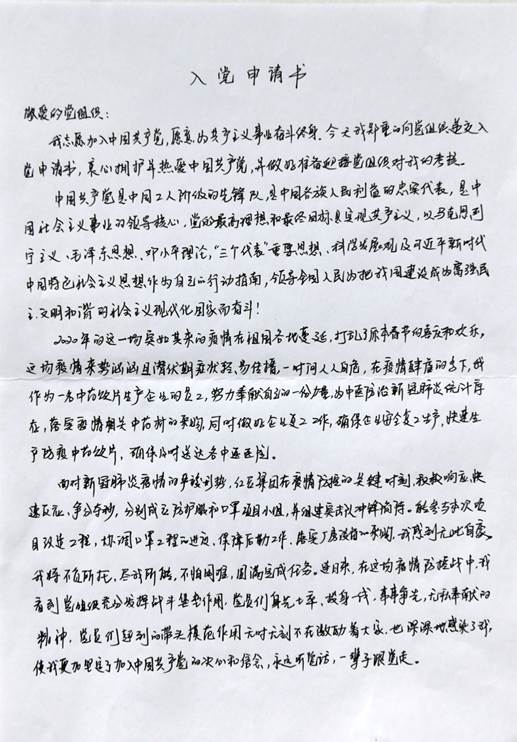 入党申请书
敬爱的党组织：
我志愿加入中国共产党，愿意为共产主义事业奋斗终身。今天我郑重的向党组织递交入
党申请书，衷心拥护并热爱中国共产党，并做好准备迎接党组织对我的考核。
中国共产党是中国工人阶级的先锋队，是中国各族人民利益的忠实代表，是中
国社会主义事业的领导核心，党的最高理想和最终目标是实现共产主义，以马克思列
宁主义、毛泽东思想、邓小平理论，“三个代表”重要思想、科学发展观及习近平新时代
中国特色社会主义思想作为自己的行动指南，领导全国人民为把我国建设成为富强民
主文明和谐的社会主义现代化国家而奋斗！
2020年的这一场突如其来的疫情在祖国各地蔓延，打乱了原本春节的喜庆和欢乐，
这场疫情来势汹汹且潜伏期症状轻、易传播，一时间人人自危，在疫情肆虐的当下，我
作为一名中药饮片生产企业的员工，努力奉献自己的一份力量，为中医防治新冠肺炎
落实疫情相关中药材的采购，同时做好企业复工工作，确保企业安全复工生产，快速生
产防疫中药饮片，确保及时送达各中医医院。
面对新冠肺炎疫情的严峻形势，红豆集团在疫情防控的关键时刻，积极响应，快
速反应，争分夺秒，分别成立防护服和口罩项目小组，并组建突击队冲锋陷阵。能参与本次项
目改造工程，协调口罩工程的进度，保障后勤工作，落实厂房设备的采购，我感到无比自豪。
我将不负所托，尽我所能，不怕困难，圆满完成任务。连日来，在这场疫情防控战中，我
看到党组织充分发挥战斗堡垒作用，党员们身先士卒，投身一线，事事争先，无私奉献的
精神，党员们起到的带头模范作用无时无刻不在激励着大家，也深深地感染了我，
使我更加坚定了加入中国共产党的决心和信念，永远听党话，一辈子跟党走。